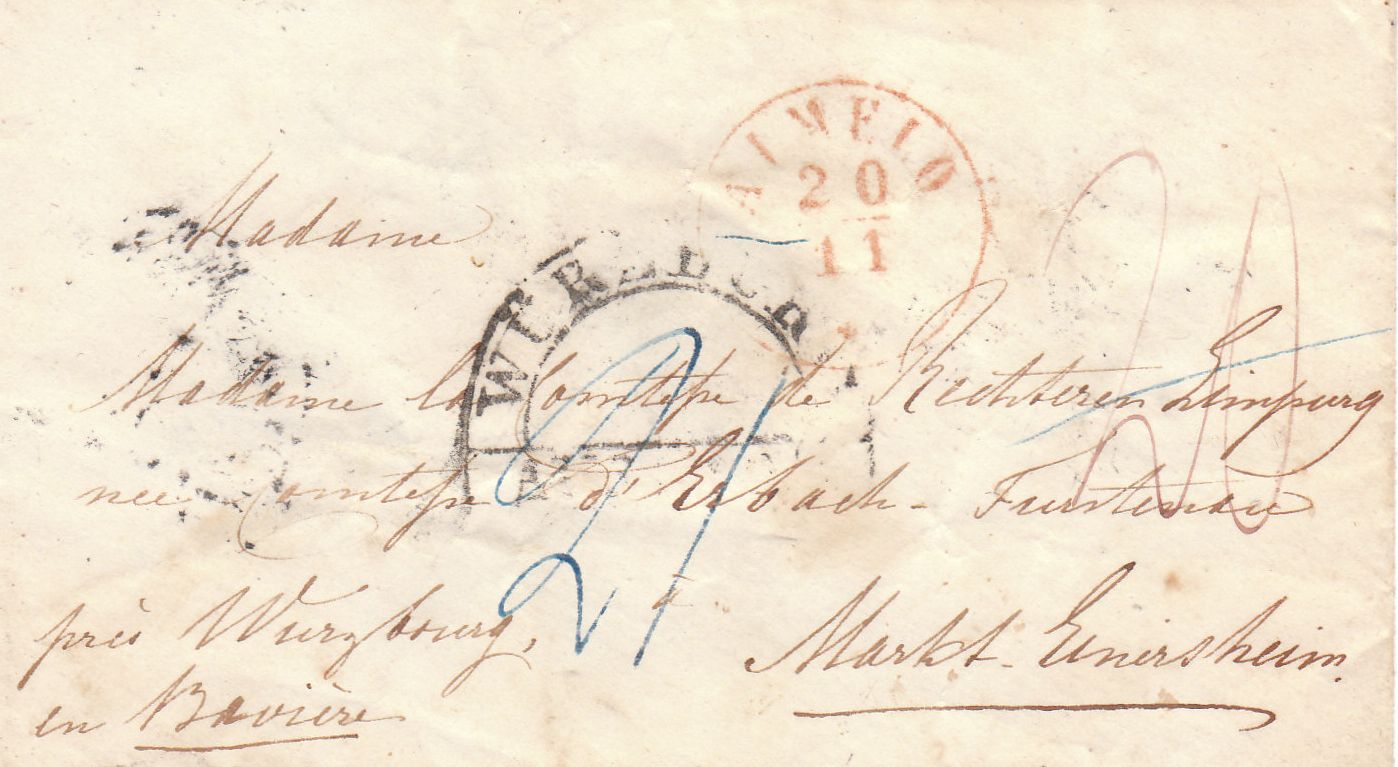 ALMELO
20
11
Madame
WÜRZBUR
Madame la Comtesse de Rechteren Limpurg
née Comtesse d'Erbach-Furstenau
près Wurzbourg,
Markt-Einersheim.
en Bavière
20
21